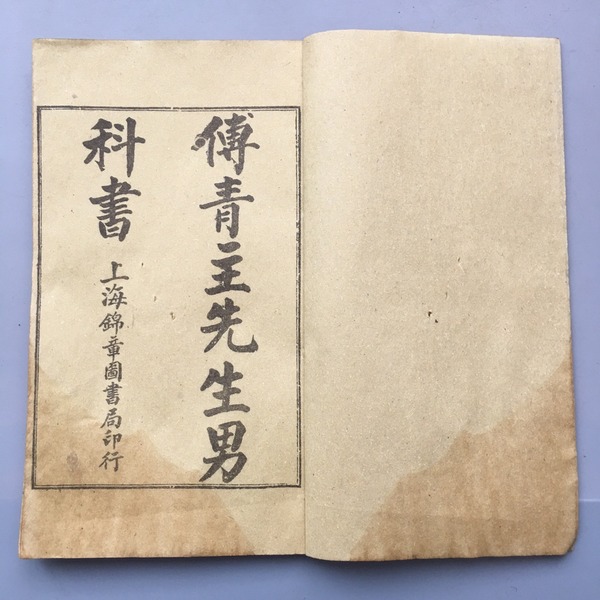 傅青主先生男
科書
上海錦章圖書局印行